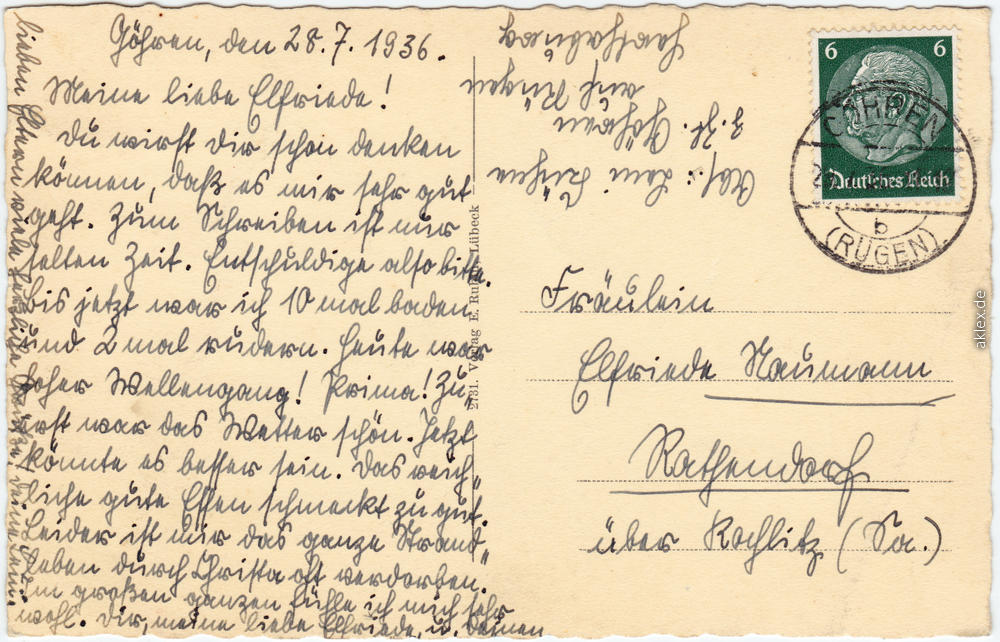 Göhren, den 28.7.1936.
Meine liebe Elfriede!
Du wirst dir schon denken
können, daß es mir sehr gut
geht. Zum Schreiben ist nur
selten Zeit. Entschuldige also bitte.
Bis jetzt war ich 10 mal baden
und 2 mal rudern. Heute war
hoher Wellengang! Prima! Zu„
erst war das Wetter schön. Jetzt
könnte es besser sein. Das reich„
liche gute Essen schmeckt zu gut.
Leider ist mir das ganze Strand„
leben durch Christa oft verdorben.
Im großen ganzen fühle ich mich sehr
wohl. Dir, meine liebe Elfriede, u. Deinen
lieben Eltern viele herzliche Grüße, Deine
Abs.:
z. Zt. Göhren
auf Rügen
6 6
Deutsches Reich
GÖHREN
b
(RÜGEN)
Fräulein
Elfriede Naumann
Rathendorf
über Rochlitz (Sa.)
2731. Verlag E. Lübeck
aklex.de